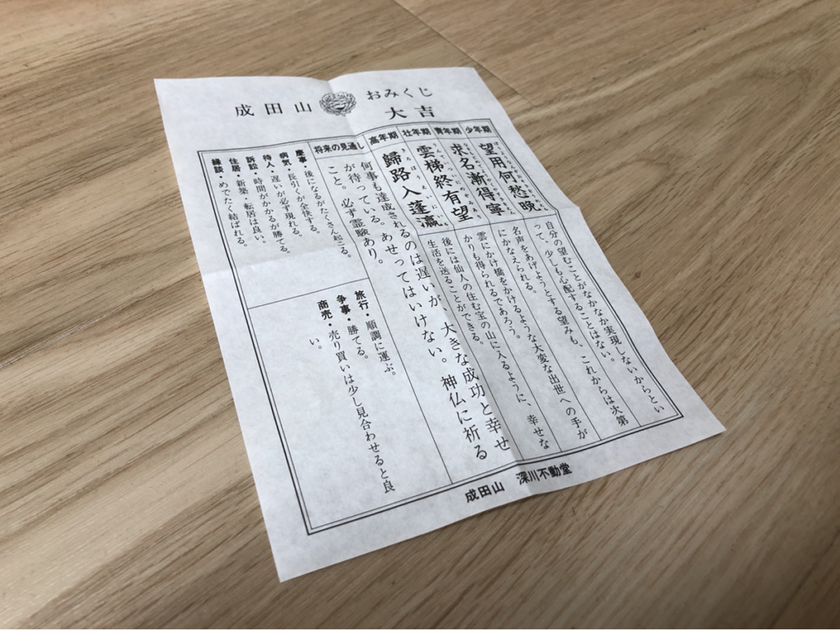 成田山 おみくじ
大吉
少年期
望用何愁晚
自分の望むことがなかなか実現しないからとい
って、少しも心配することはない。
青年期
求名漸得寧
名声をあげようとする望みも、これからは次第
にかなえられる。
壮年期
雲梯終有望
雲にかけ橋をかけるような大変な出世への手が
かりも得られるであろう。
高年期
歸路入蓬瀛
後では仙人の住む宝の山に入るように、幸せな
生活を送ることができる。
将来の見通し
何事も達成されるのは遅いが、大きな成功と幸せ
が待っている。あせってはいけない。神仏に祈る
こと。必ず霊験あり。
慶事・後になるがたくさん起こる。
病気・長引くが全快する。
待人・遅いが必ず現れる。
訴訟・時間がかかるが勝てる。
住居・新築・転居は良い。
縁談・めでたく結ばれる。
旅行・順調に運ぶ。
争事・勝てる。
商売・売り買いは少し見合わせると良
い。
成田山 深川不動堂